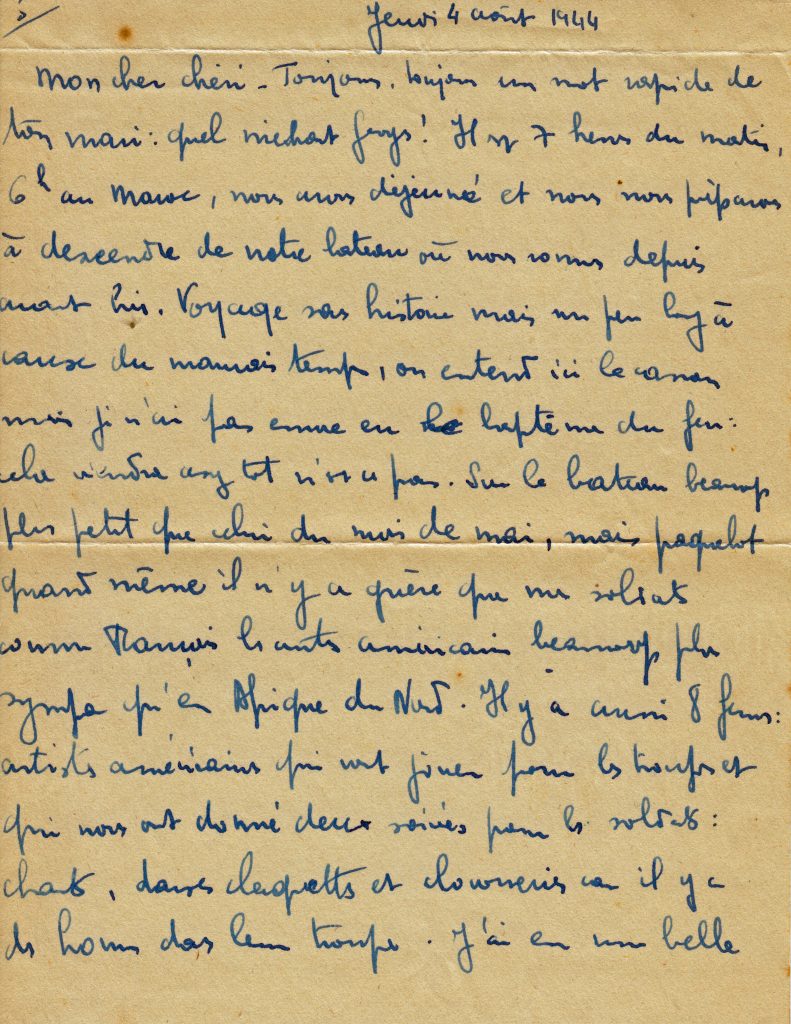 3
Jeudi 4 août 1944
Mon cher chéri - Toujours, toujours un mot rapide de
ton mari : quel méchant ! Il est 7 heures du matin,
6h au Maroc, nous avons déjeuné et nous nous préparons
à descendre de notre bateau où nous sommes depuis
avant hier. Voyage sans histoire mais un peu long à
cause du mauvais temps, on entend ici le canon
mais je n'ai pas encore eu le baptême du feu :
cela viendra assez tôt n'est ce pas. Sur le bateau beaucoup
plus petit que celui du mois de mai, mais paquebot
quand même il n'y a guère que nos soldats
comme Français les autres américains beaucoup plus
sympa qu'en Afrique du Nord. Il y a aussi 8 femmes :
artistes américaines qui vont jouer pour les troupes et
qui nous ont donné deux soirées pour les soldats :
chants, danses claquettes et clowneries car il y a
des hommes dans leur troupe. J'ai eu une belle